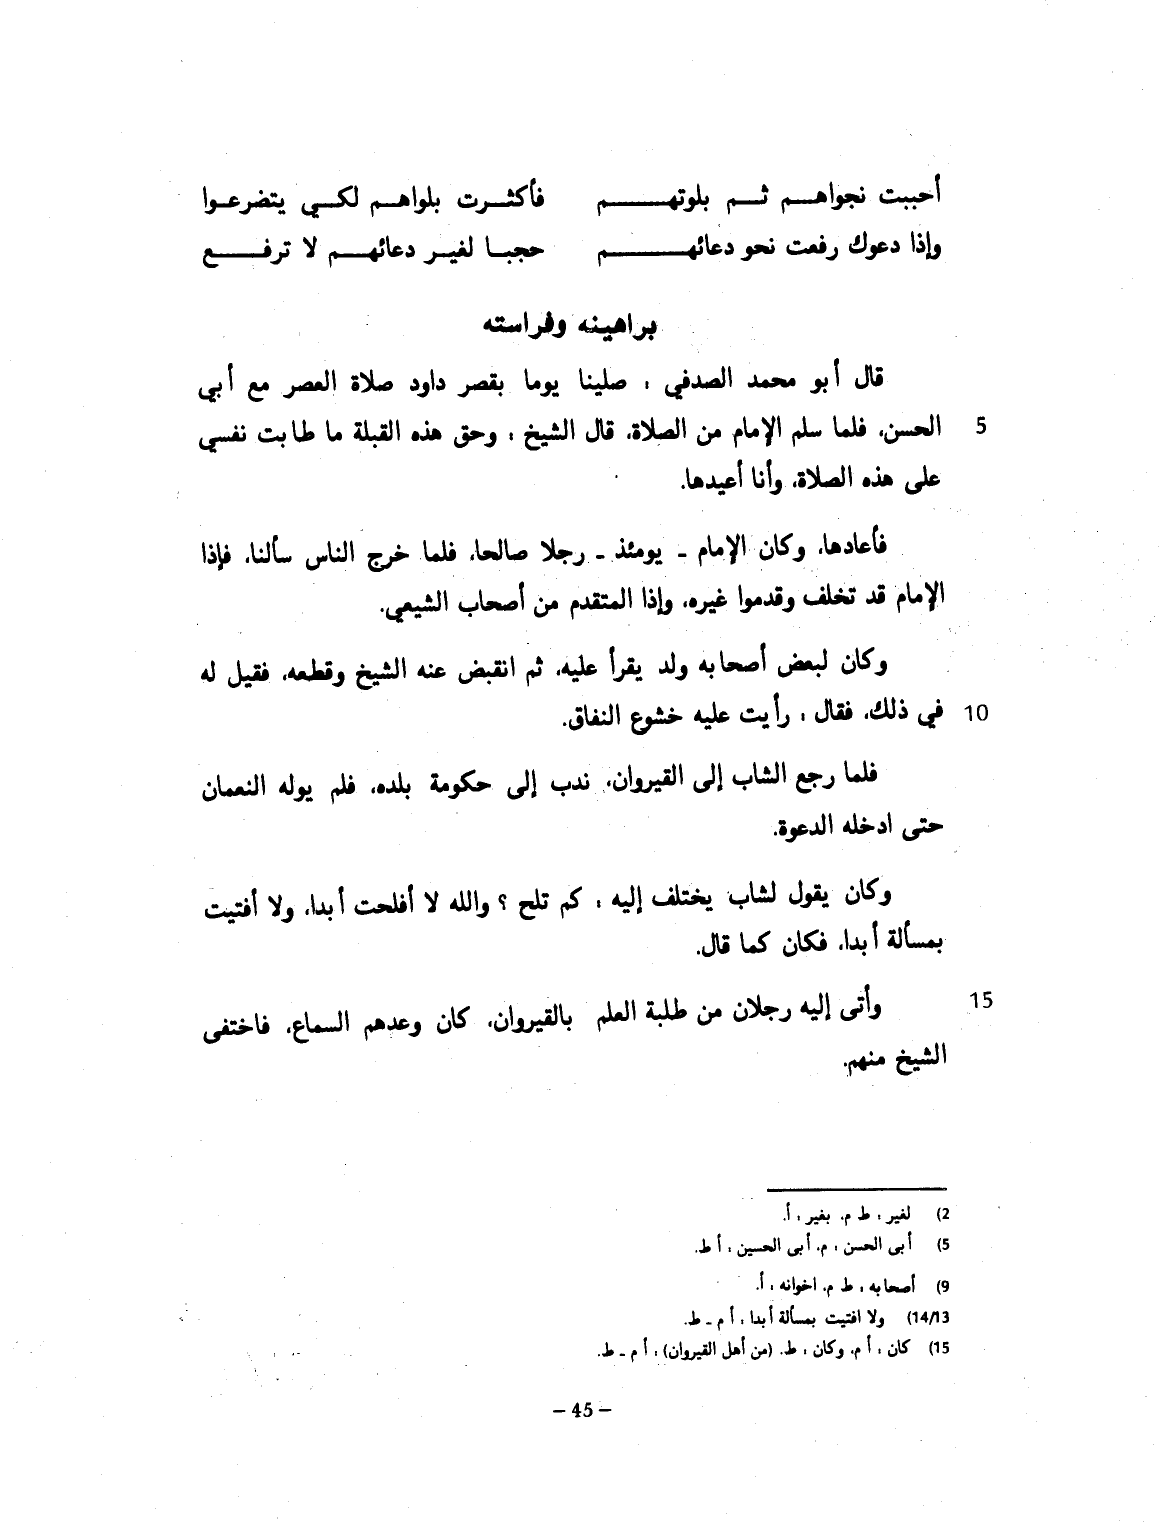 أحببت نجواهم ثم بلوتهم فأكثرت بلواهم لكي يتضرعوا
وإذا دعوك رفعت نحو دعائهم حجبا لغير دعائهم لا ترفع
براهينه وفراسته
قال أبو محمد الصدفي : صلينا يوما بقصر داود صلاة العصر مع أبي
5 الحسن، فلما سلم الإمام من الصلاة، قال الشيخ : وحق هذه القبلة ما طابت نفسي
على هذه الصلاة، وأنا أعيدها.
فأعادها، وكان الإمام - يومئذ - رجلا صالحا، فلما خرج الناس سألنا، فإذا
الإمام قد تخلف وقدموا غيره، وإذا المتقدم من أصحاب الشيعي.
وكان لبعض أصحابه ولد يقرأ عليه، ثم انقبض عنه الشيخ وقطعه، فقيل له
10 في ذلك، فقال : رأيت عليه خشوع النفاق.
فلما رجع الشاب إلى القيروان، ندب إلى حكومة بلده، فلم يوله النعمان
حتى ادخله الدعوة.
وكان يقول لشاب يختلف إليه : كم تلح ؟ والله لا أفلحت أبدا، ولا أفتيت
بمسألة أبدا، فكان كما قال.
15 وأتى إليه رجلان من طلبة العلم بالقيروان، كان وعدهم السماع، فاختفى
الشيخ منهم.
2) لغير : ط م، بغير : أ.
5) أبى الحسن : م، أبى الحسين : أ ط.
9) أصحابه : ط م، اخوانه : أ.
14/13) ولا افتيت بمسألة أبدا : أ م - ط.
15) كان : أ م، وكان : ط. (من أهل القيروان) : أ م - ط.
- 45 -